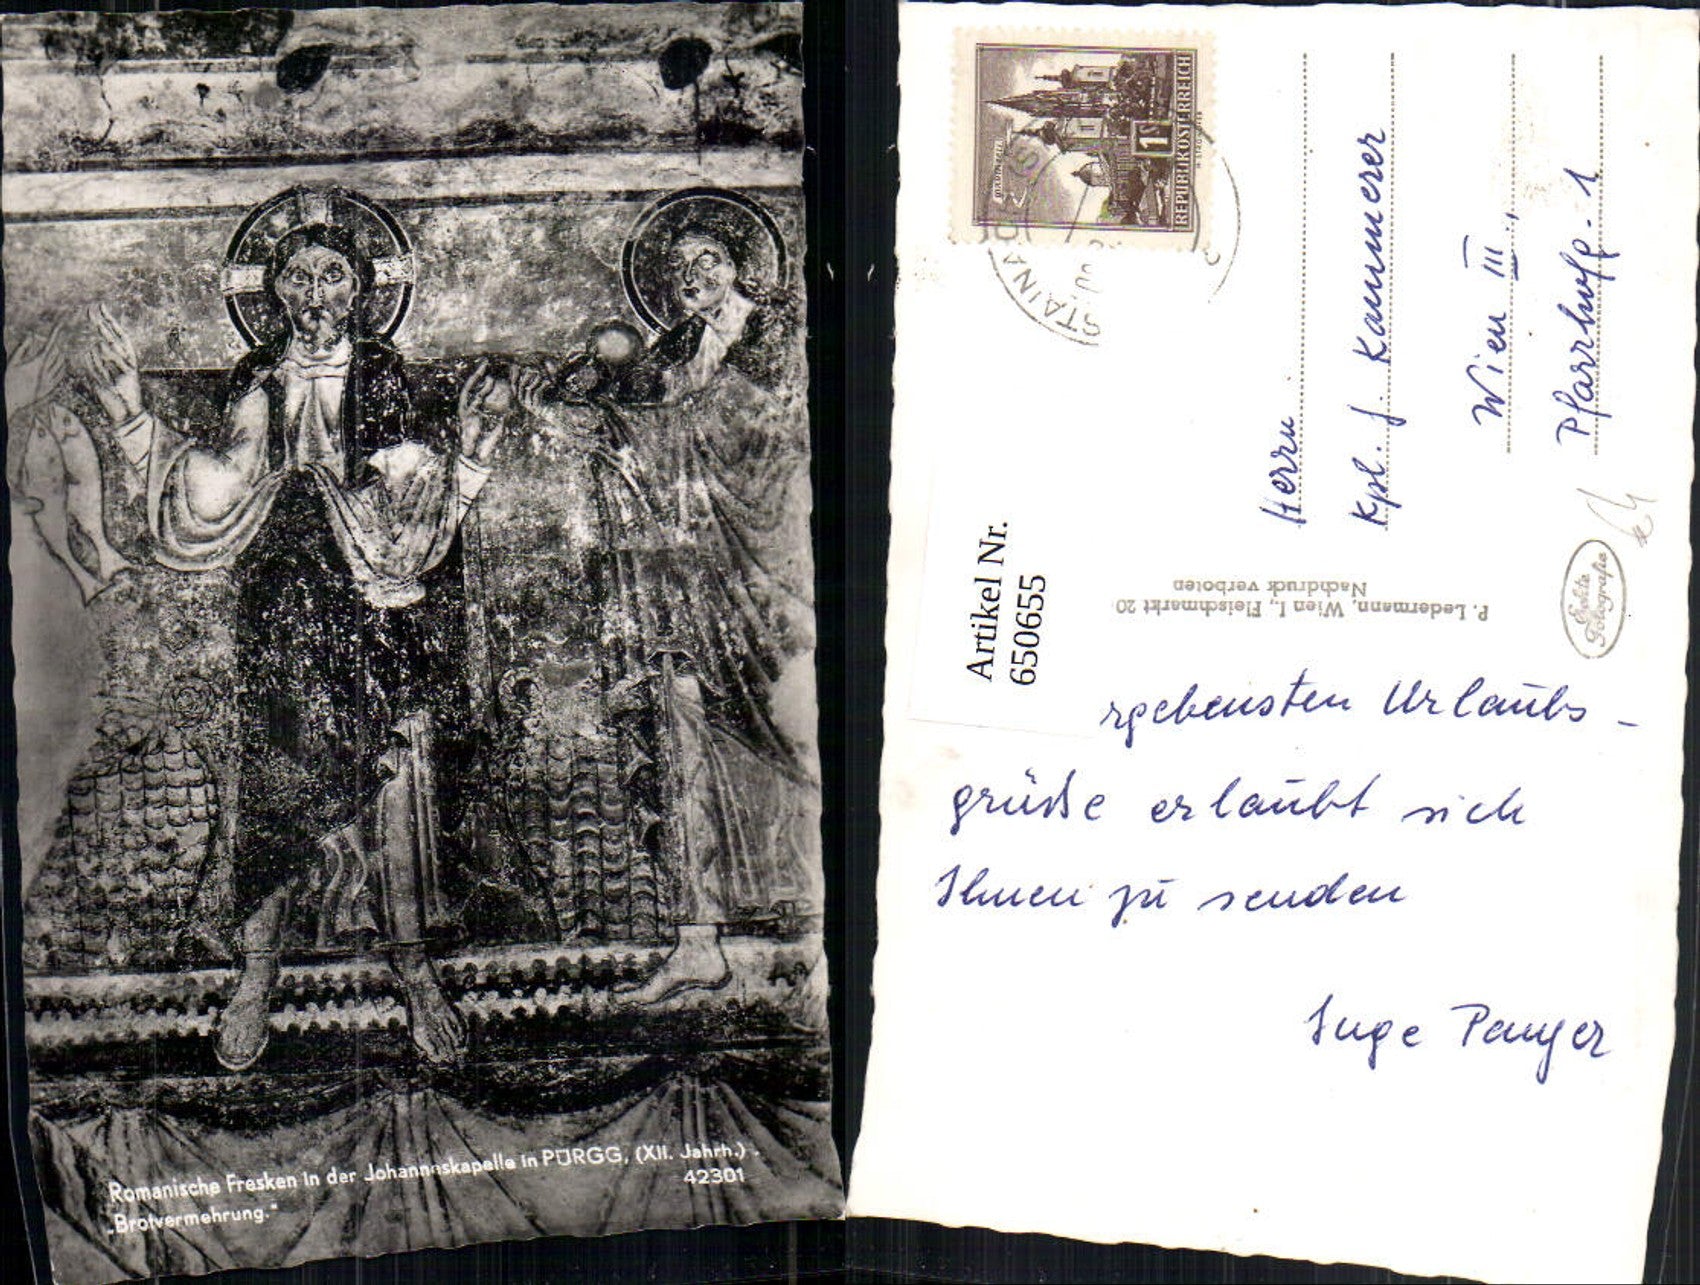 Romanische Fresken in der Johanneskapelle in PÜRGG, (XII. Jahrh.).
„Brotvermehrung."
42301
REPUBLIK ÖSTERREICH
1
MARIAZELL
STAINACH
Herrn
Kpl. J. Kammerer
Wien III.,
Pfarrhofg. 1
Artikel Nr.
650655
P. Ledermann, Wien I., Fleischmarkt 20
Nachdruck verboten
Echte
Fotografie
rgebensten Urlaubs-
grüße erlaubt sich
Ihnen zu senden
Inge